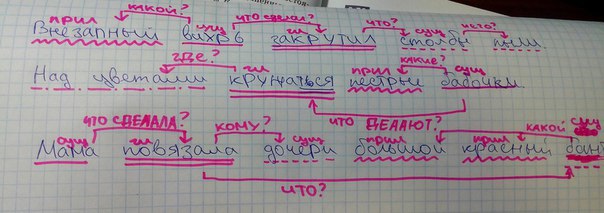 какой? что сделал? что? чего?
прил сущ гл сущ
Внезапный вихрь закрутил столбы пыли.
где? гл прил какие? сущ
Над цветами кружаться пёстрые бабочки.
что делают?
что сделала? кому? какой
сущ гл сущ прил прил сущ
Мама повязала дочери большой красный бант
что?